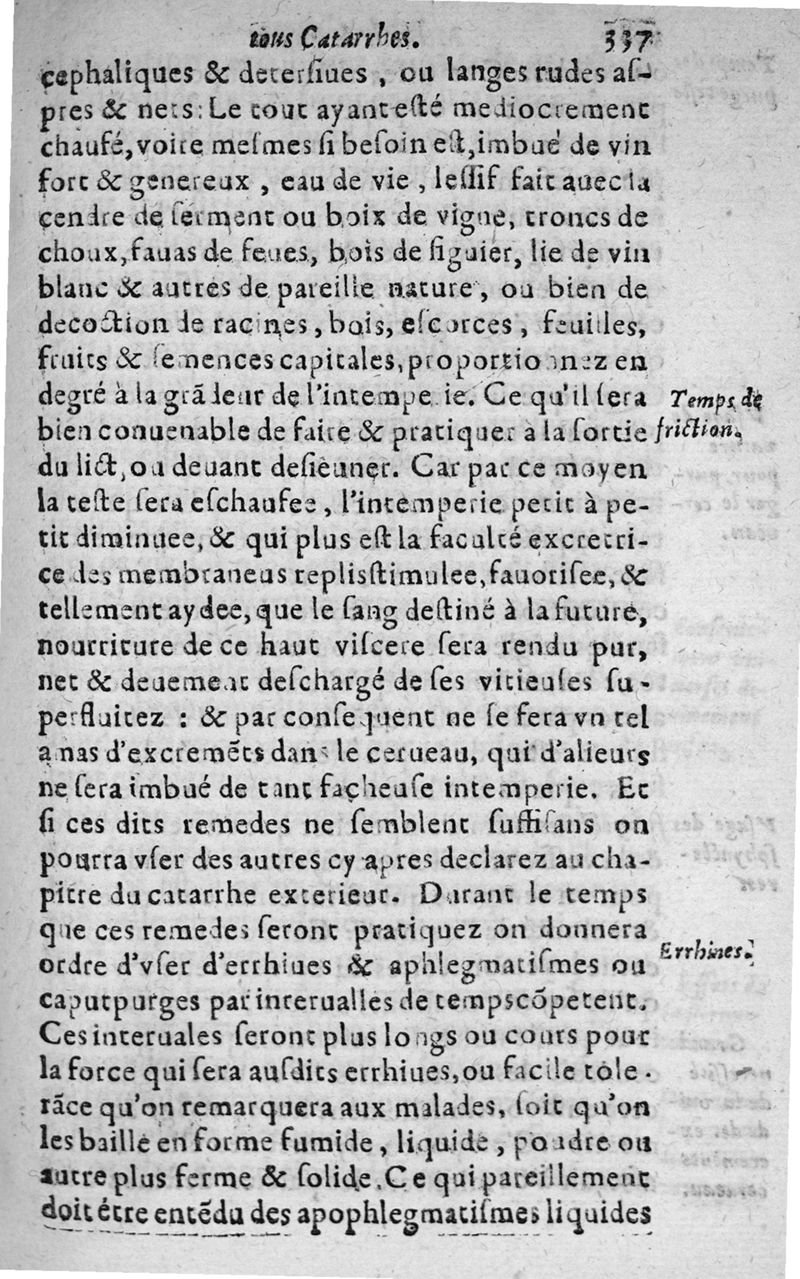 tous Catarrhes. 337
cephaliques & deterſiues, ou langes rudes aſ-
pres & nets: Le tout ayant eſté mediocrement
chaufé, voire meſmes ſi beſoin eſt, imbué de vin
fort & genereux, eau de vie, leſſif fait auec la
cendre de ſerment ou boix de vigne, troncs de
choux, fauas de feues, bois de figuier, lie de vin
blanc & autres de pareille nature, ou bien de
decoction de racines, bois, eſcorces, feuilles,
fruits & ſemences capitales, proportionnez en
degré à la grãdeur de l'intemperie. Ce qu'il ſera
Temps de
bien conuenable de faire & pratiquer à la ſortie
friction.
du lict, ou deuant deſieuner. Car par ce moyen
la teſte ſera eſchaufee, l'intemperie petit à pe-
tit diminuee, & qui plus eſt la faculté excretri-
ce des membraneus replis ſtimulee, fauoriſee, &
tellement aydee, que le ſang deſtiné à la future,
nourriture de ce haut viſcere ſera rendu pur,
net & deuement deſchargé de ſes vitieuſes ſu-
perfluitez : & par conſequent ne ſe fera vn tel
amas d'excremẽts dans le cerueau, qui d'alieurs
ne ſera imbué de tant facheuſe intemperie. Et
ſi ces dits remedes ne ſemblent ſuffiſans on
pourra vſer des autres cy apres declarez au cha-
pitre du catarrhe exterieur. Durant le temps
que ces remedes ſeront pratiquez on donnera
Errhines.
ordre d'vſer d'errhiues & aphlegmatiſmes ou
caputpurges par interualles de temps cõpetent.
Ces interuales ſeront plus longs ou cours pour
la force qui ſera auſdits errhiues, ou facile tole-
rãce qu'on remarquera aux malades, ſoit qu'on
les baille en forme fumide, liquide, poudre ou
autre plus ferme & ſolide. Ce qui pareillement
doit étre entẽdu des apophlegmatiſmes liquides